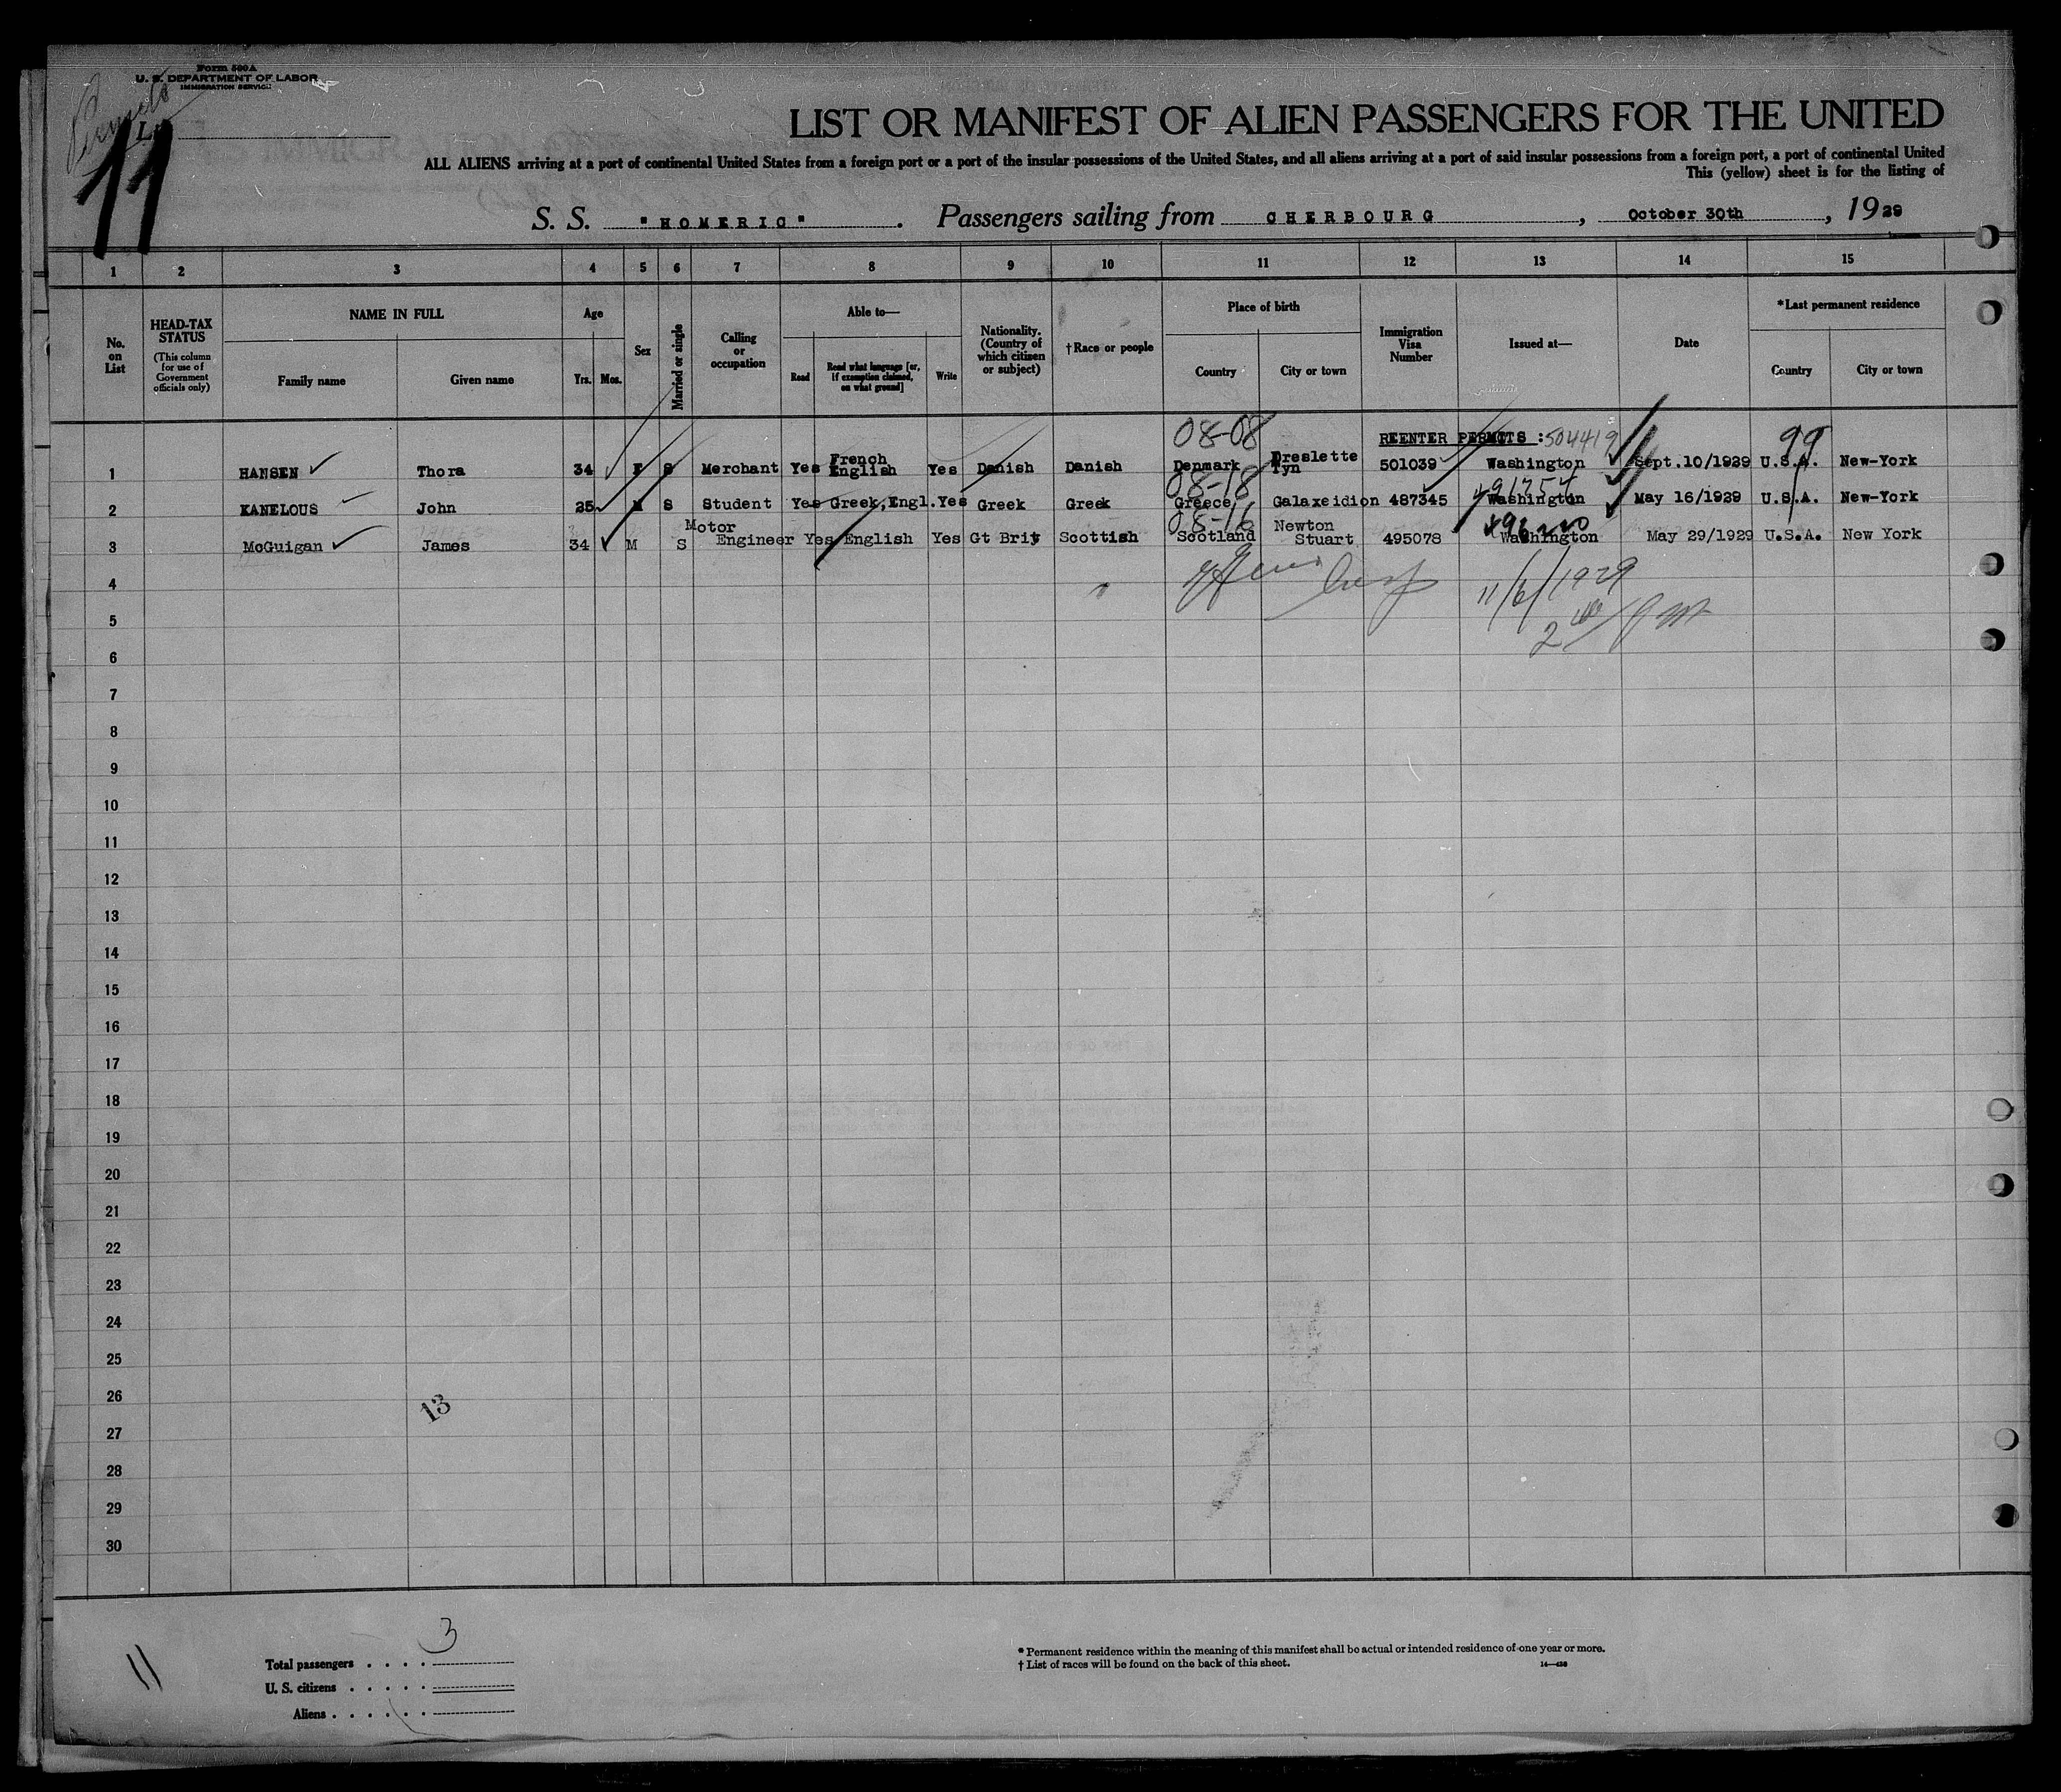 Form 500A
U. S. DEPARTMENT OF LABOR
IMMIGRATION SERVICE
11
LIST OR MANIFEST OF ALIEN PASSENGERS FOR THE UNITED
ALL ALIENS arriving at a port of continental United States from a foreign port or a port of the insular possessions of the United States, and all aliens arriving at a port of said insular possessions from a foreign port, a port of continental United
This (yellow) sheet is for the listing of
S. S. "HOMERIC". Passengers sailing from CHERBOURG, October 30th, 1929
1 2 3 4 5 6 7 8 9 10 11 12 13 14 15
No. on List
HEAD-TAX STATUS
(This column for use of Government officials only)
NAME IN FULL
Family name Given name
Age
Yrs. Mos.
Sex
Married or single
Calling or occupation
Able to—
Read Read what language [or, if exemption claimed, on what ground] Write
Nationality. (Country of which citizen or subject)
†Race or people
Place of birth
Country City or town
Immigration Visa Number
Issued at—
Date
*Last permanent residence
Country City or town
08-08 REENTER PERMITS : 504419 99
1 HANSEN Thora 34 F S Merchant Yes French English Yes Danish Danish Denmark Dreslette Tyn 501039 Washington Sept.10/1929 U.S.A. New-York
08-18 491754
2 KANELOUS John 25 M S Student Yes Greek,Engl. Yes Greek Greek Greece Galaxeidion 487345 Washington May 16/1929 U.S.A. New-York
08-16
3 McGuigan James 34 M S Motor Engineer Yes English Yes Gt Brit Scottish Scotland Newton Stuart 495078 Washington May 29/1929 U.S.A. New York
4 11/6/1929
5
6
7
8
9
10
11
12
13
14
15
16
17
18
19
20
21
22
23
24
25
26
13
27
28
29
30
11
3
Total passengers . . . .
U. S. citizens . . . . .
Aliens . . . . . .
* Permanent residence within the meaning of this manifest shall be actual or intended residence of one year or more.
† List of races will be found on the back of this sheet.